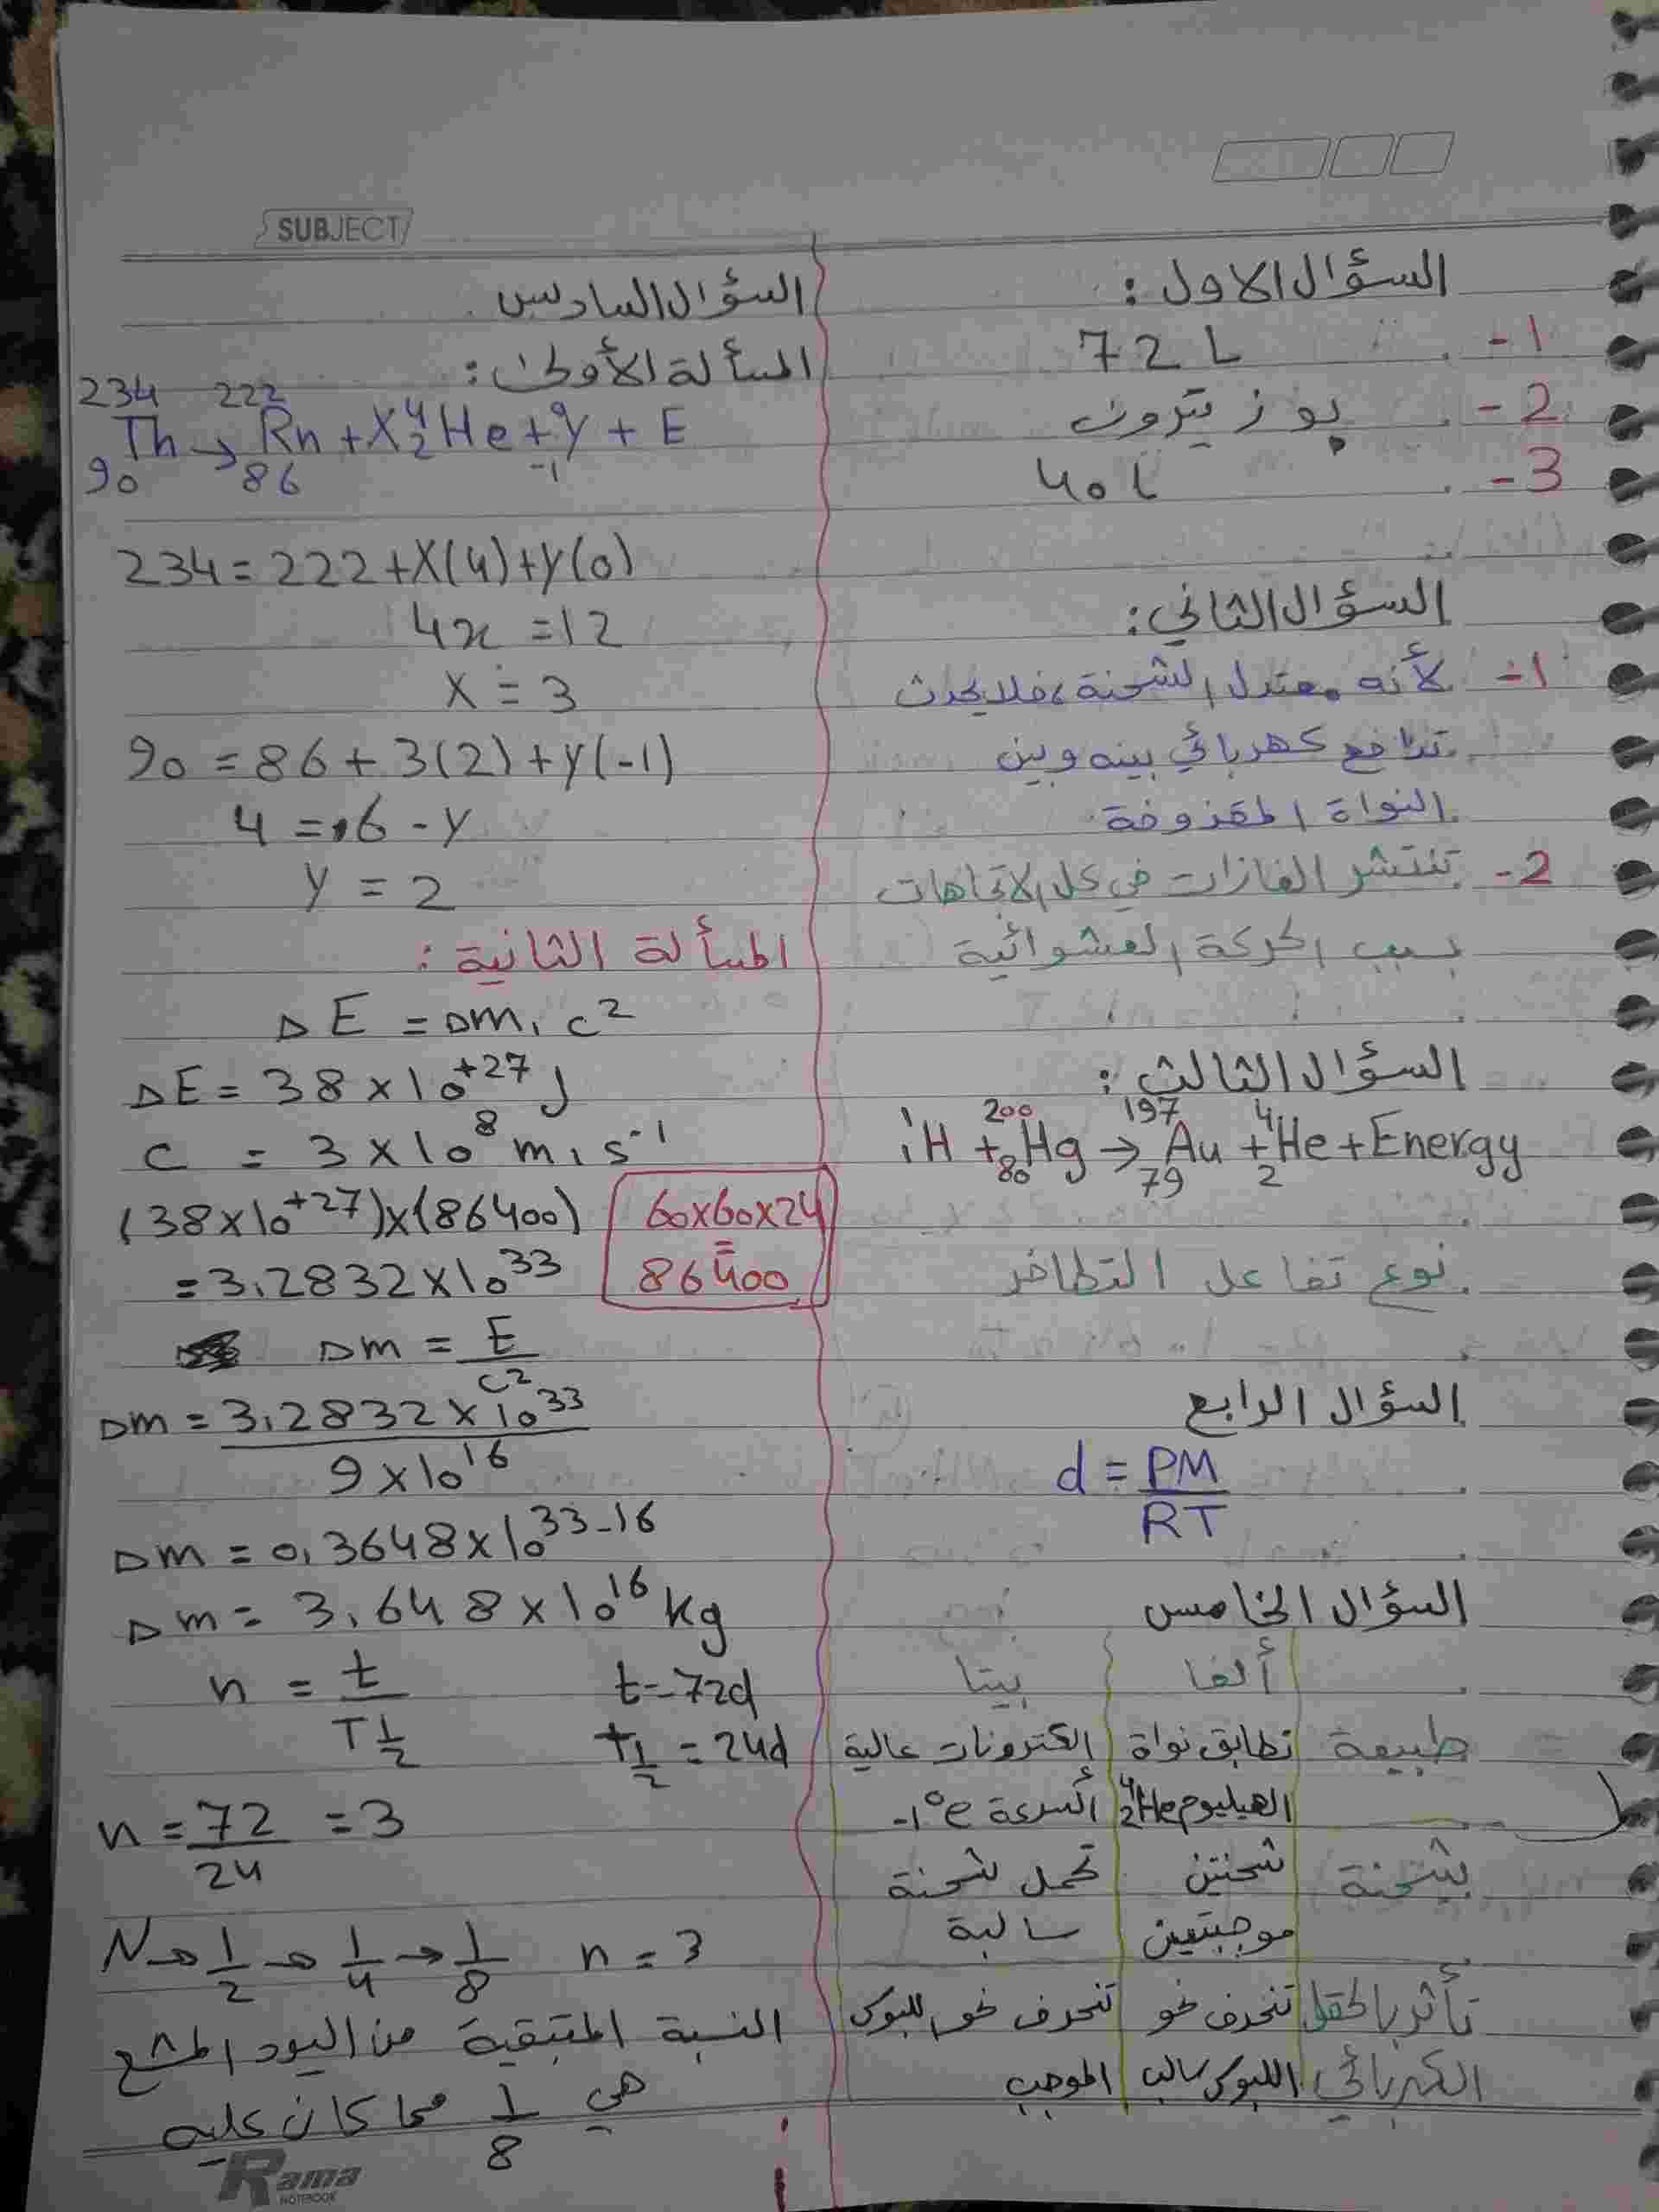 SUBJECT
السؤال الاول :
1- 72 L
2- بوزيترون
3- 40 L
السؤال الثاني :
1- لأنه معتدل الشحنة، فلا يحدث
تدافع كهربائي بينه وبين
النواة المقذوفة
2- تنتشر الغازات في كل الاتجاهات
بسبب الحركة العشوائية
السؤال الثالث :
¹₁H + ²⁰⁰₈₀Hg → ¹⁹⁷₇₉Au + ⁴₂He + Energy
نوع تفاعل التطافر
السؤال الرابع
d = PM / RT
السؤال الخامس
ألفا | بيتا
طبيعة | تطابق نواة | الكترونات عالية
الهيليوم ⁴₂He | السرعة ⁰₋₁e
شحنة | شحنتين | تحمل شحنة
موجبتين | سالبة
تأثر بالحقل | تنحرف نحو | تنحرف نحو اللبوس
الكهربائي | اللبوس سالب | الموجب
السؤال السادس
المسألة الأولى :
²³⁴₉₀Th → ²²²₈₆Rn + X⁴₂He + ⁰₋₁y + E
234 = 222 + X(4) + y(0)
4x = 12
X = 3
90 = 86 + 3(2) + y(-1)
4 = 6 - y
y = 2
المسألة الثانية :
ΔE = Δm . c²
ΔE = 38 × 10⁺²⁷ J
C = 3 × 10⁸ m . s⁻¹
(38 × 10⁺²⁷) × (86400)
60×60×24
=
86400
= 3.2832 × 10³³
Δm = E / c²
Δm = 3.2832 × 10³³ / 9 × 10¹⁶
Δm = 0.3648 × 10³³⁻¹⁶
Δm = 3.648 × 10¹⁶ kg
n = t / T½ t = 72d
t½ = 24d
n = 72 / 24 = 3
N → 1/2 → 1/4 → 1/8 n = 3
النسبة المتبقية من اليود المشع
هي 1/8 مما كان عليه
Rama
NOTEBOOK